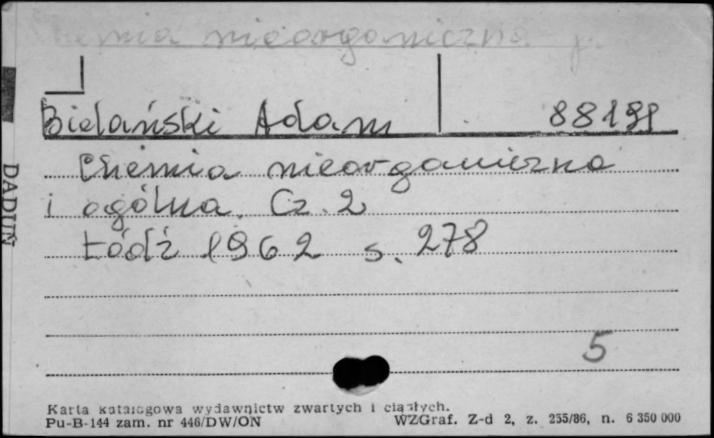 Chemia nieorganiczna
Bielański Adam 88199
Chemia nieorganiczna
i ogólna. Cz. 2
Łódź 1962 s. 278
5
DADUŃ
Karta katalogowa wydawnictw zwartych i ciągłych.
Pu-B-144 zam. nr 446/DW/ON WZGraf. Z-d 2, z. 235/86, n. 6 350 000